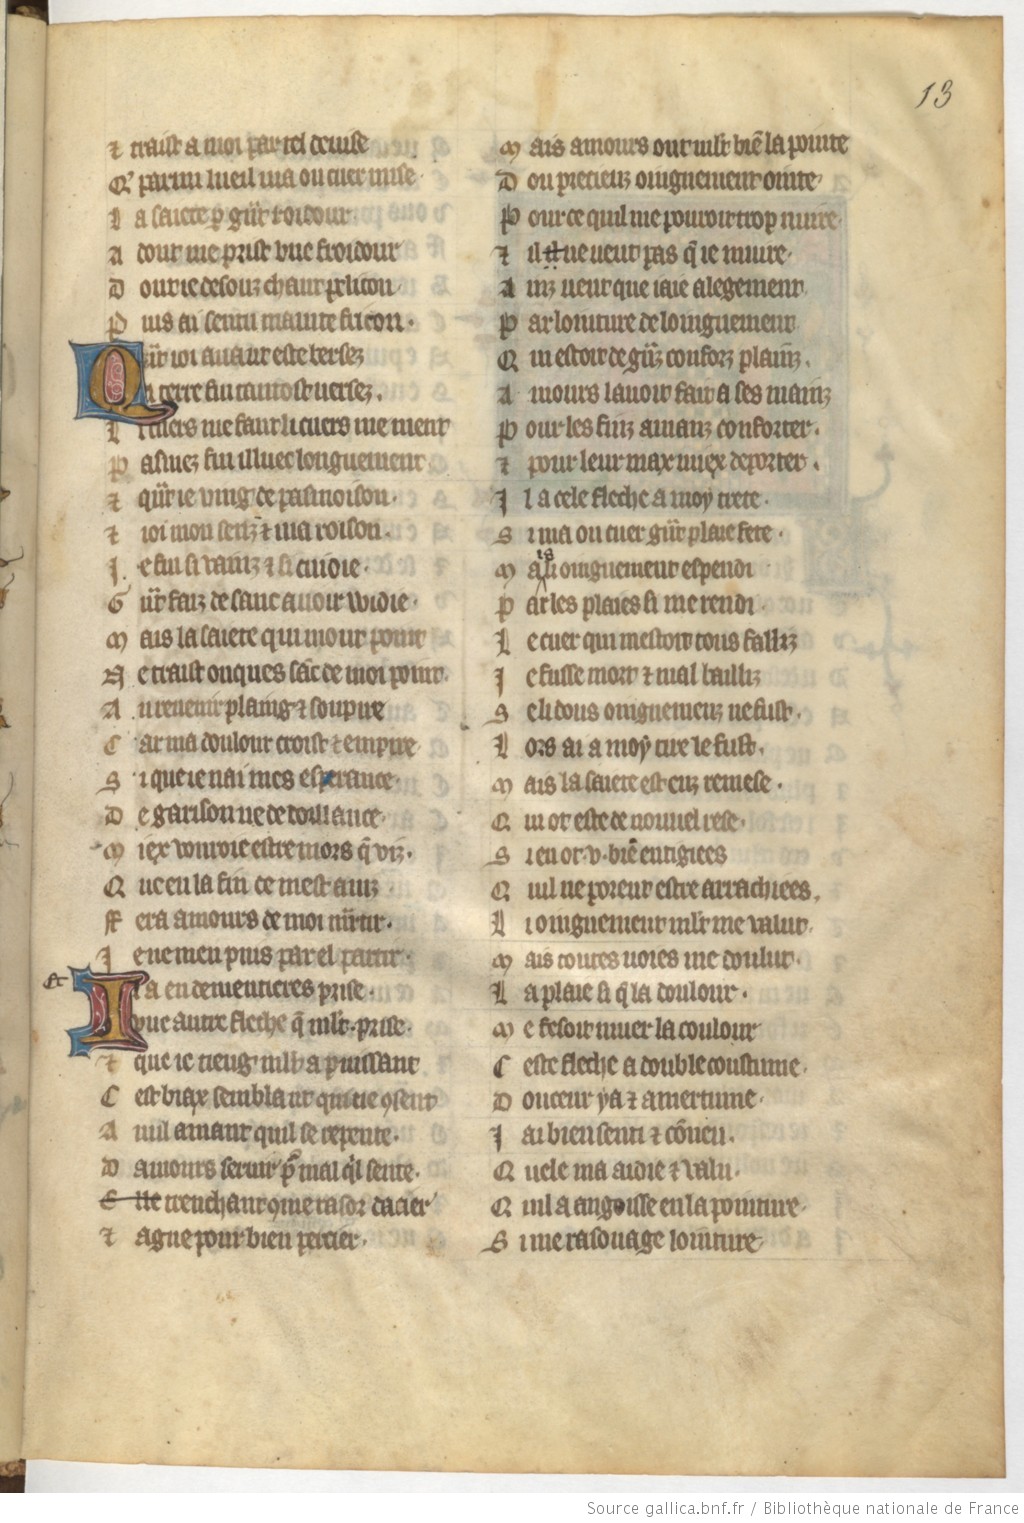 13
⁊ traist a moi par tel deuise
Q̃ parmi lueil ma ou cuer mise
L a saiete p̱ gñt roidour
A dont me prist vne froidour
D ont ie desouz chaut peliton
P uis ai sentu mainte fricon
Quãt ioi auant este bersez
A terre fui tantost versez
L i cuers me faut li cuers me ment
P asmez fui illuec longuement
⁊ qñt ie ving de pasmoison
⁊ ioi mon senz ⁊ ma roison
J e fui si vainz ⁊ si cuidie
G ñt faiz de sanc auoir widie
M ais la saiete qui mout point
N e traist onques sãc de moi point
A u reuenir plaing ⁊ soupire
C ar ma doulour croist ⁊ empire
S i que ie nai mes esperance
D e garison ne de doutance
M iex vouroie estre mors q̃ viz
Q ue en la fin ce mest auiz
F era amours de moi martir
J e ne men puis par el partir
Il a endementieres prise
vne autre fleche q̃ mlt prise
⁊ que ie tieng mlt a puissant
C est biax semblant qui ne ꝯsent
A nul amant quil se repente
D amours seruir pͬ mal qͥl sente
Elle trenchant ꝯme rasoz dacier
⁊ ague pour bien percier
M ais amours out mlt biẽ la pointe
D ou precieuz oingnement ointe
P our ce quil me pouoit trop nuire
⁊ il ne veut pas q̃ ie muire
A inz veut que iaie alegement
P ar lointure de loinguement
Q ui estoit de gñz conforz plainz
A mours lauoit fait a ses mainz
P our les finz amanz conforter
⁊ pour leur max miex deporter
J l a cele fleche a moy traite
S i ma ou cuer gñt plaie fete
M ais li oinguement espendi
P ar les plaies si me rendi
L e cuer qui mestoit tous falliz
J e fusse mort ⁊ mal bailliz
S e li dous oinguemenz ne fust
L ors ai a moy tire le fust
M ais la saiete est enz remese
Q ui ot este de nouuel rese
S i en ot .v. biẽ entigiees
Q ui ne porent estre arrachiees
L i oinguement mlt me valut
M ais toutes uoies me doulut
L a plaie si q̃ la doulour
M e fesoit muer la coulour
C este fleche a double coustume
D ouceur y a ⁊ amertume
J ai bien senti ⁊ cõneu
Q uele ma aidie ⁊ valu
Q uil a angoisse en la pointure
S i me rasouage lointure
Source gallica.bnf.fr / Bibliothèque nationale de France